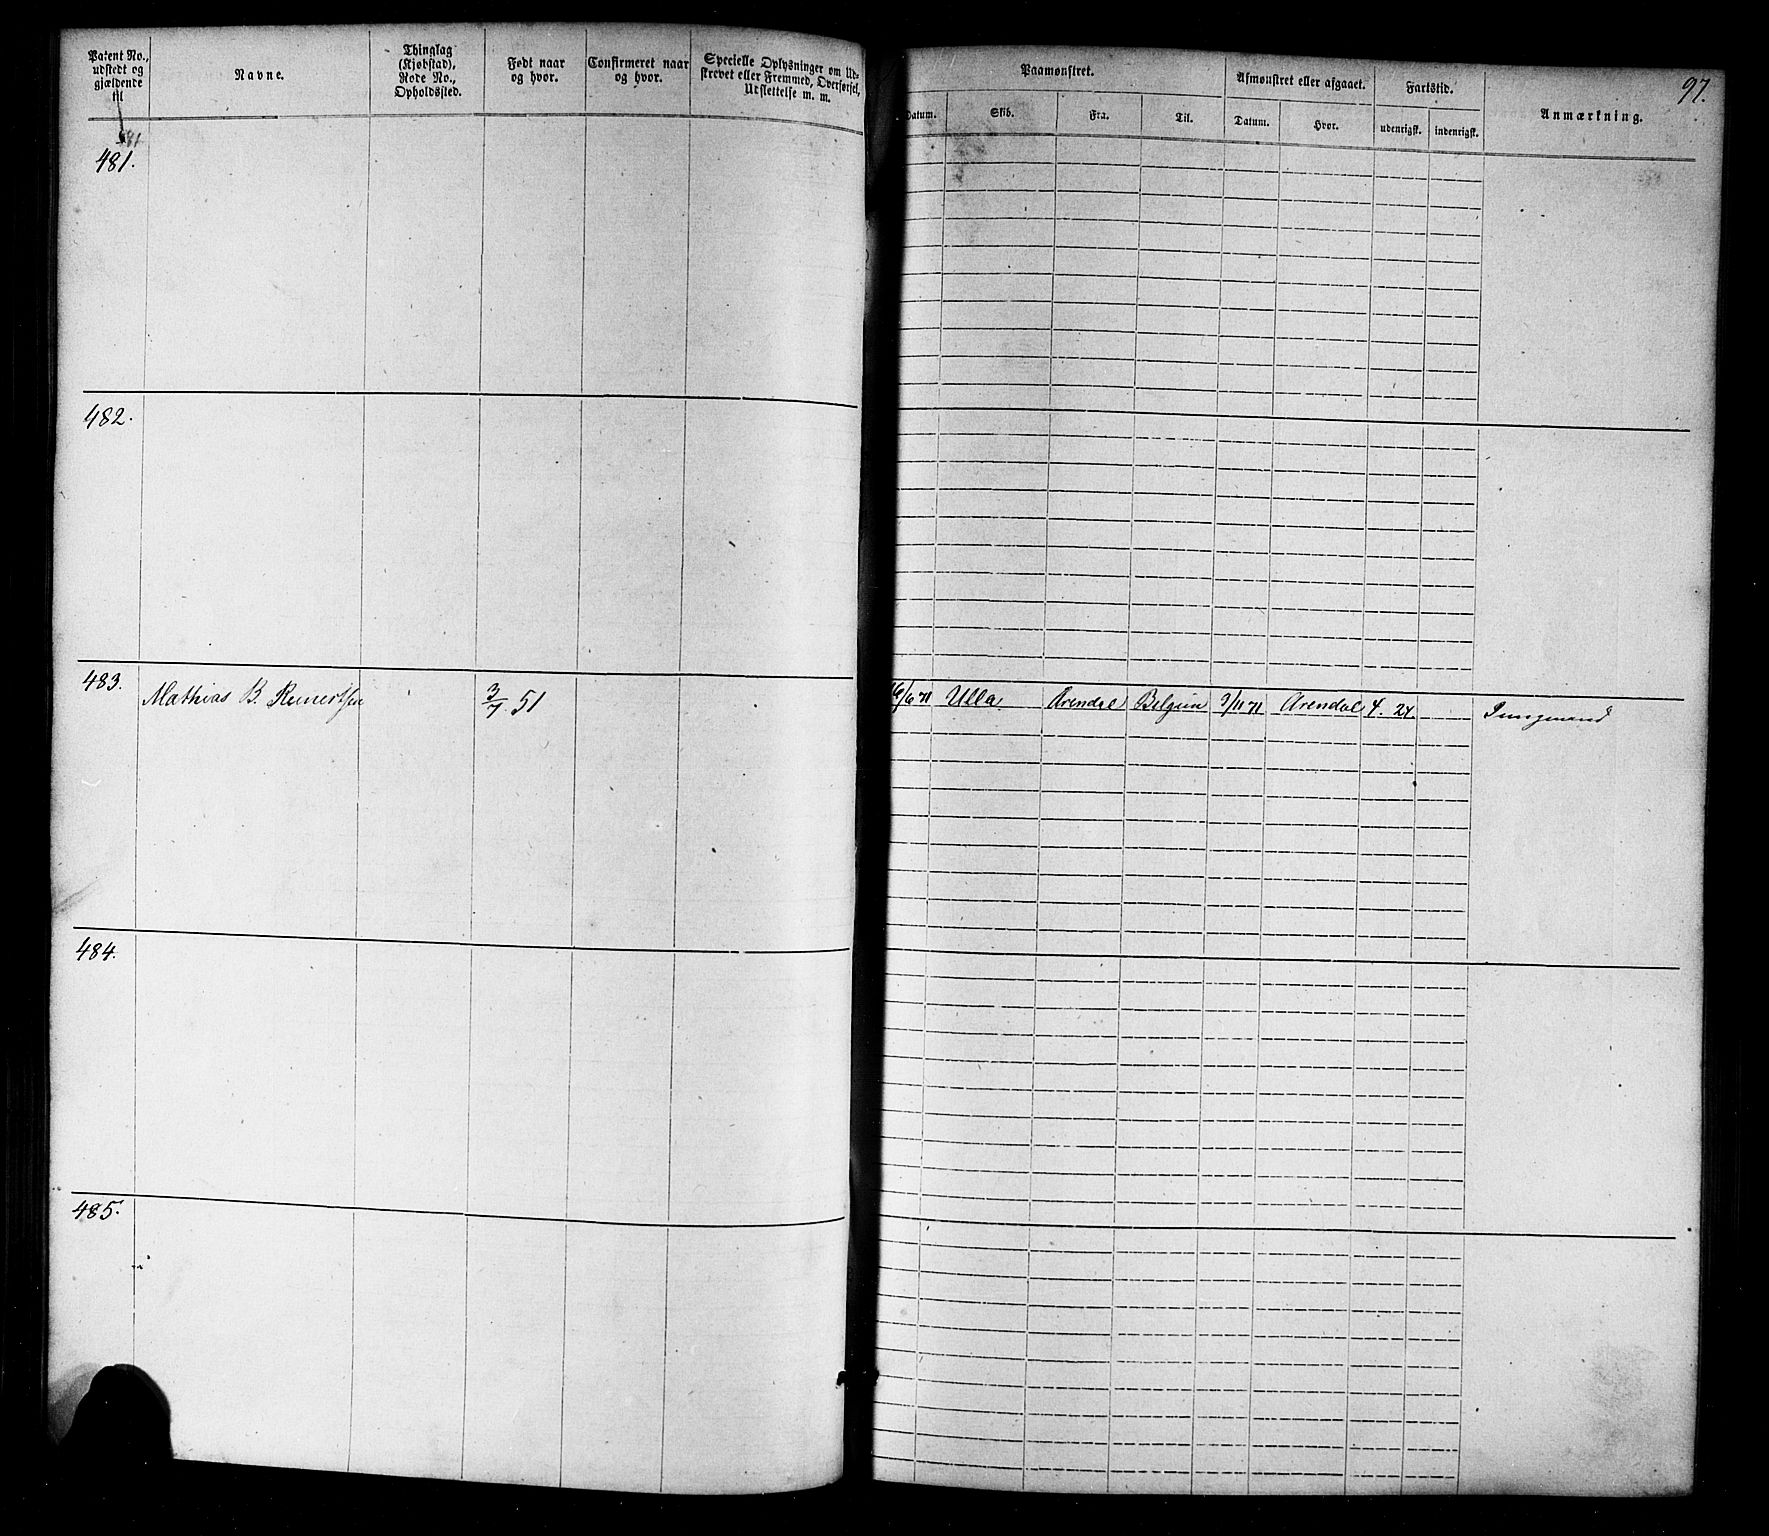 Patent No.,
udstedt og
gjældende
til
Navne.
Thinglag
(Kjøbstad),
Rode No.,
Opholdssted.
Født naar
og hvor.
Confirmeret naar
og hvor.
Specielle Oplysninger om Ud-
skrevet eller Fremmed, Overførsel,
Udslettelse m. m.
Paamønstret.
Datum.
Skib.
Fra.
Til.
Afmønstret eller afgaaet.
Datum.
Hvor.
Fartstid.
udenrigsk.
indenrigsk.
Anmærkning.
97.
481
481.
482.
483. Mathias B. Reinertsen 3/7 51 16/6 71 Ulla Arendal Belgien 9/11 71 Arendal 4. 24. Jungmand
484.
485.